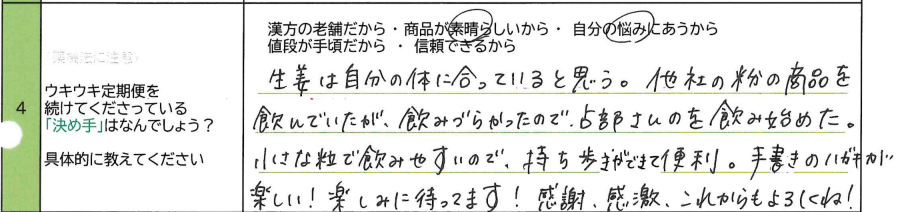 漢方の老舗だから・商品が素晴らしいから・自分の悩みにあうから
値段が手頃だから・信頼できるから
(薬機法に注意)
4
ウキウキ定期便を
続けてくださっている
「決め手」はなんでしょう？
具体的に教えてください
生姜は自分の体に合っていると思う。他社の粉の商品を
飲んでいたが、飲みづらかったので、占部さんのを飲み始めた。
小さな粒で飲みやすいので、持ち歩きができて便利。手書きのハガキが
楽しい！楽しみに待ってます！感謝、感激、これからもよろしくね！